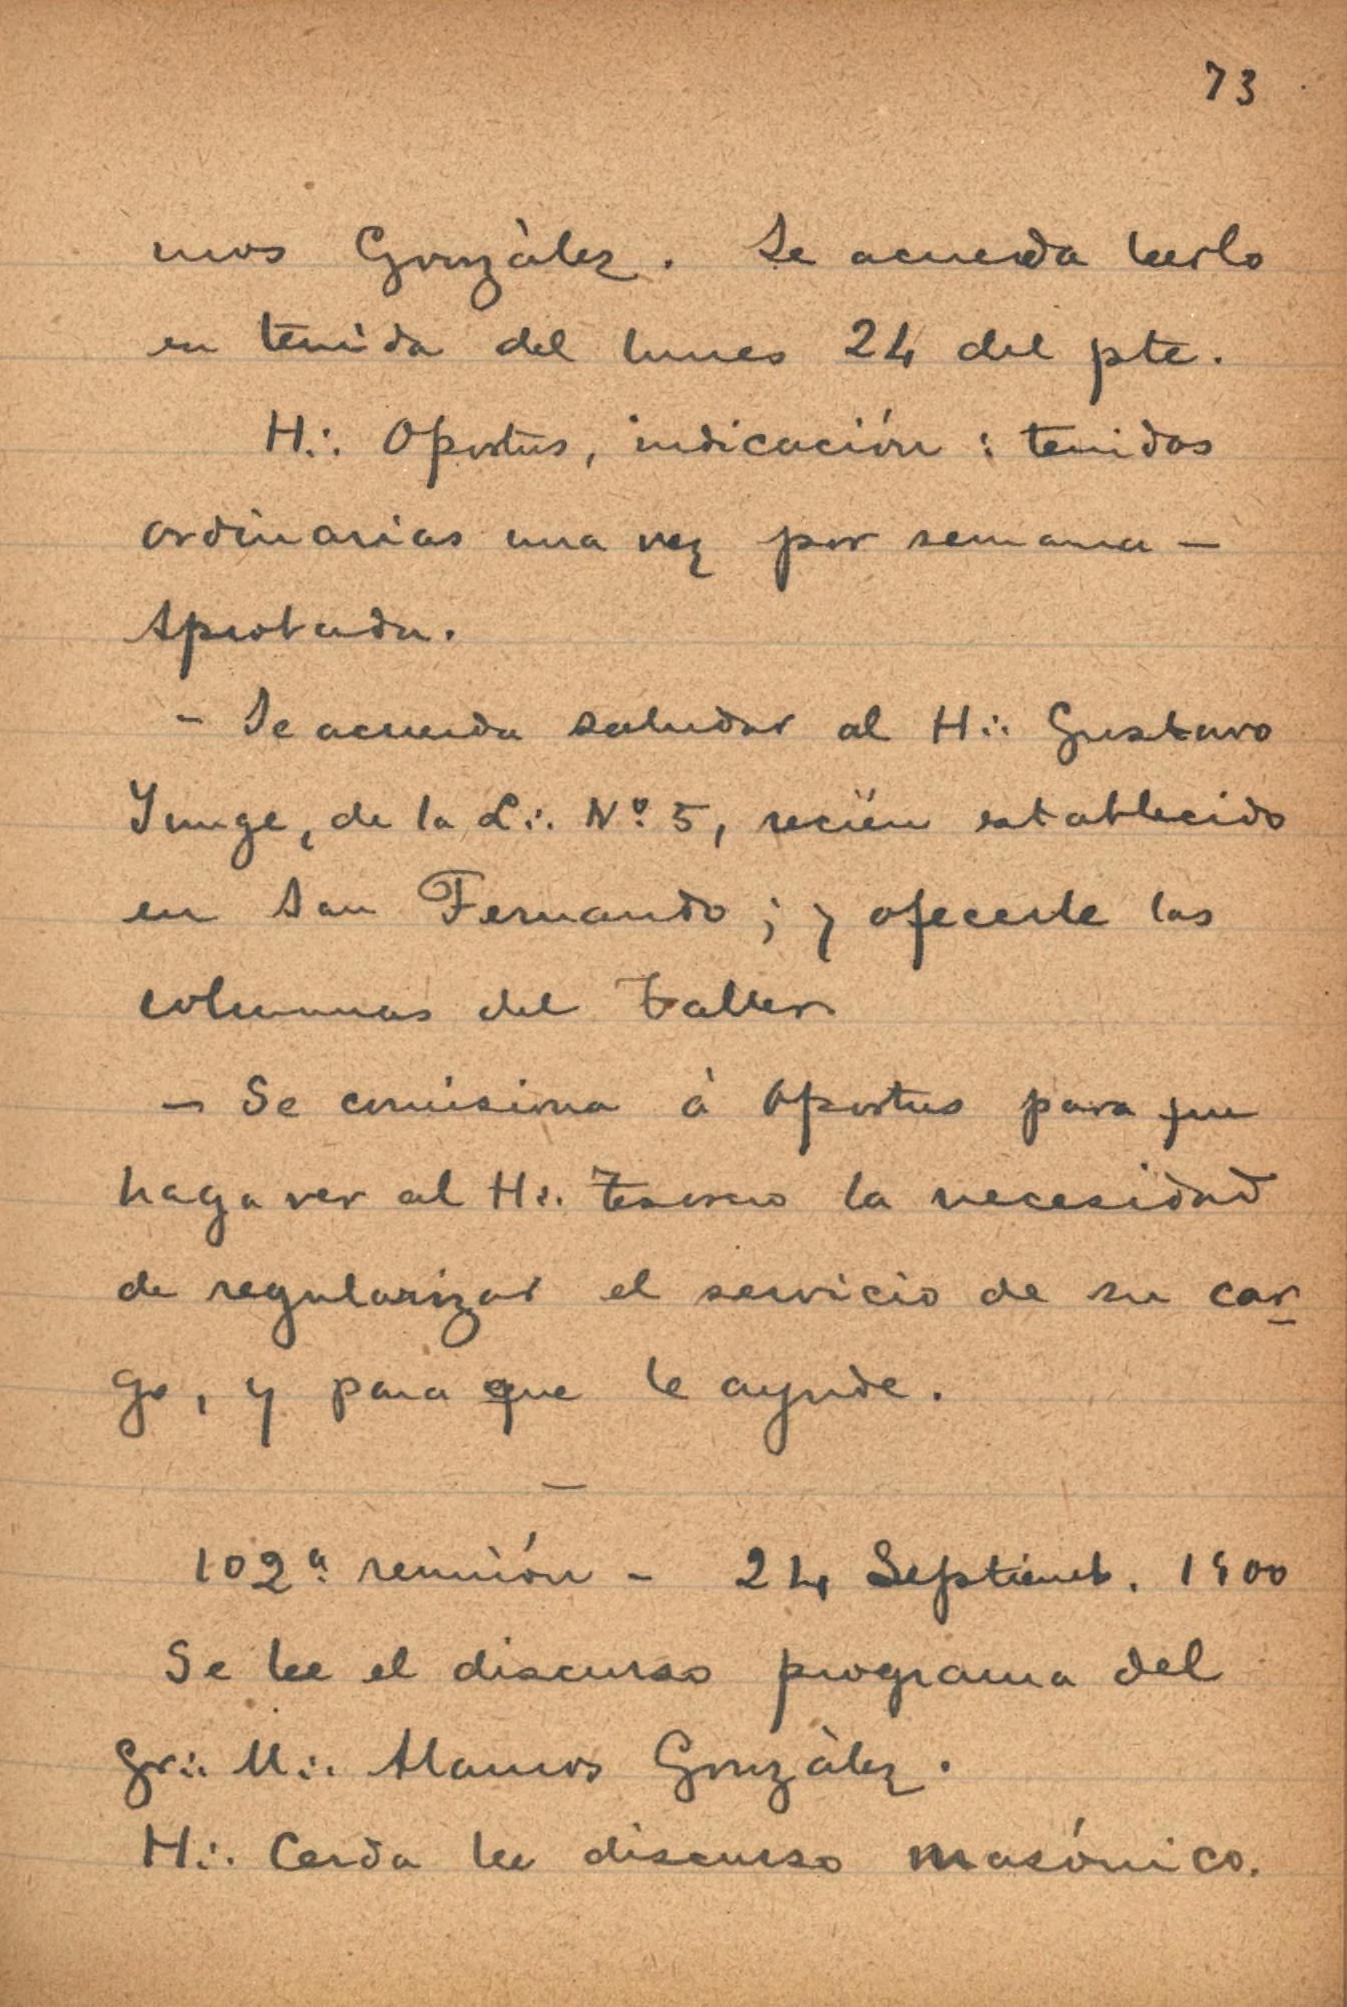 73
mos Gonzàlez. Se acuerda leerlo
en tenida del lunes 24 del pte.
H∴ Oportus, indicación: tenidas
ordinarias una vez por semana —
Aprobada.
- Se acuerda saludar al H∴ Gustavo
Junge, de la L∴ Nº 5, recién establecido
en San Fernando; y ofecerle las
columnas del Taller.
— Se comisiona à Oportus para que
haga ver al H∴ Tesorero la necesidad
de regularizar el servicio de su car-
go, y para que le ayude.
—
102ª reunión - 24 Septiemb. 1900
Se lee el discurso programa del
Gr∴ M∴ Alamos Gonzàlez.
H∴ Cerda lee discurso masónico.